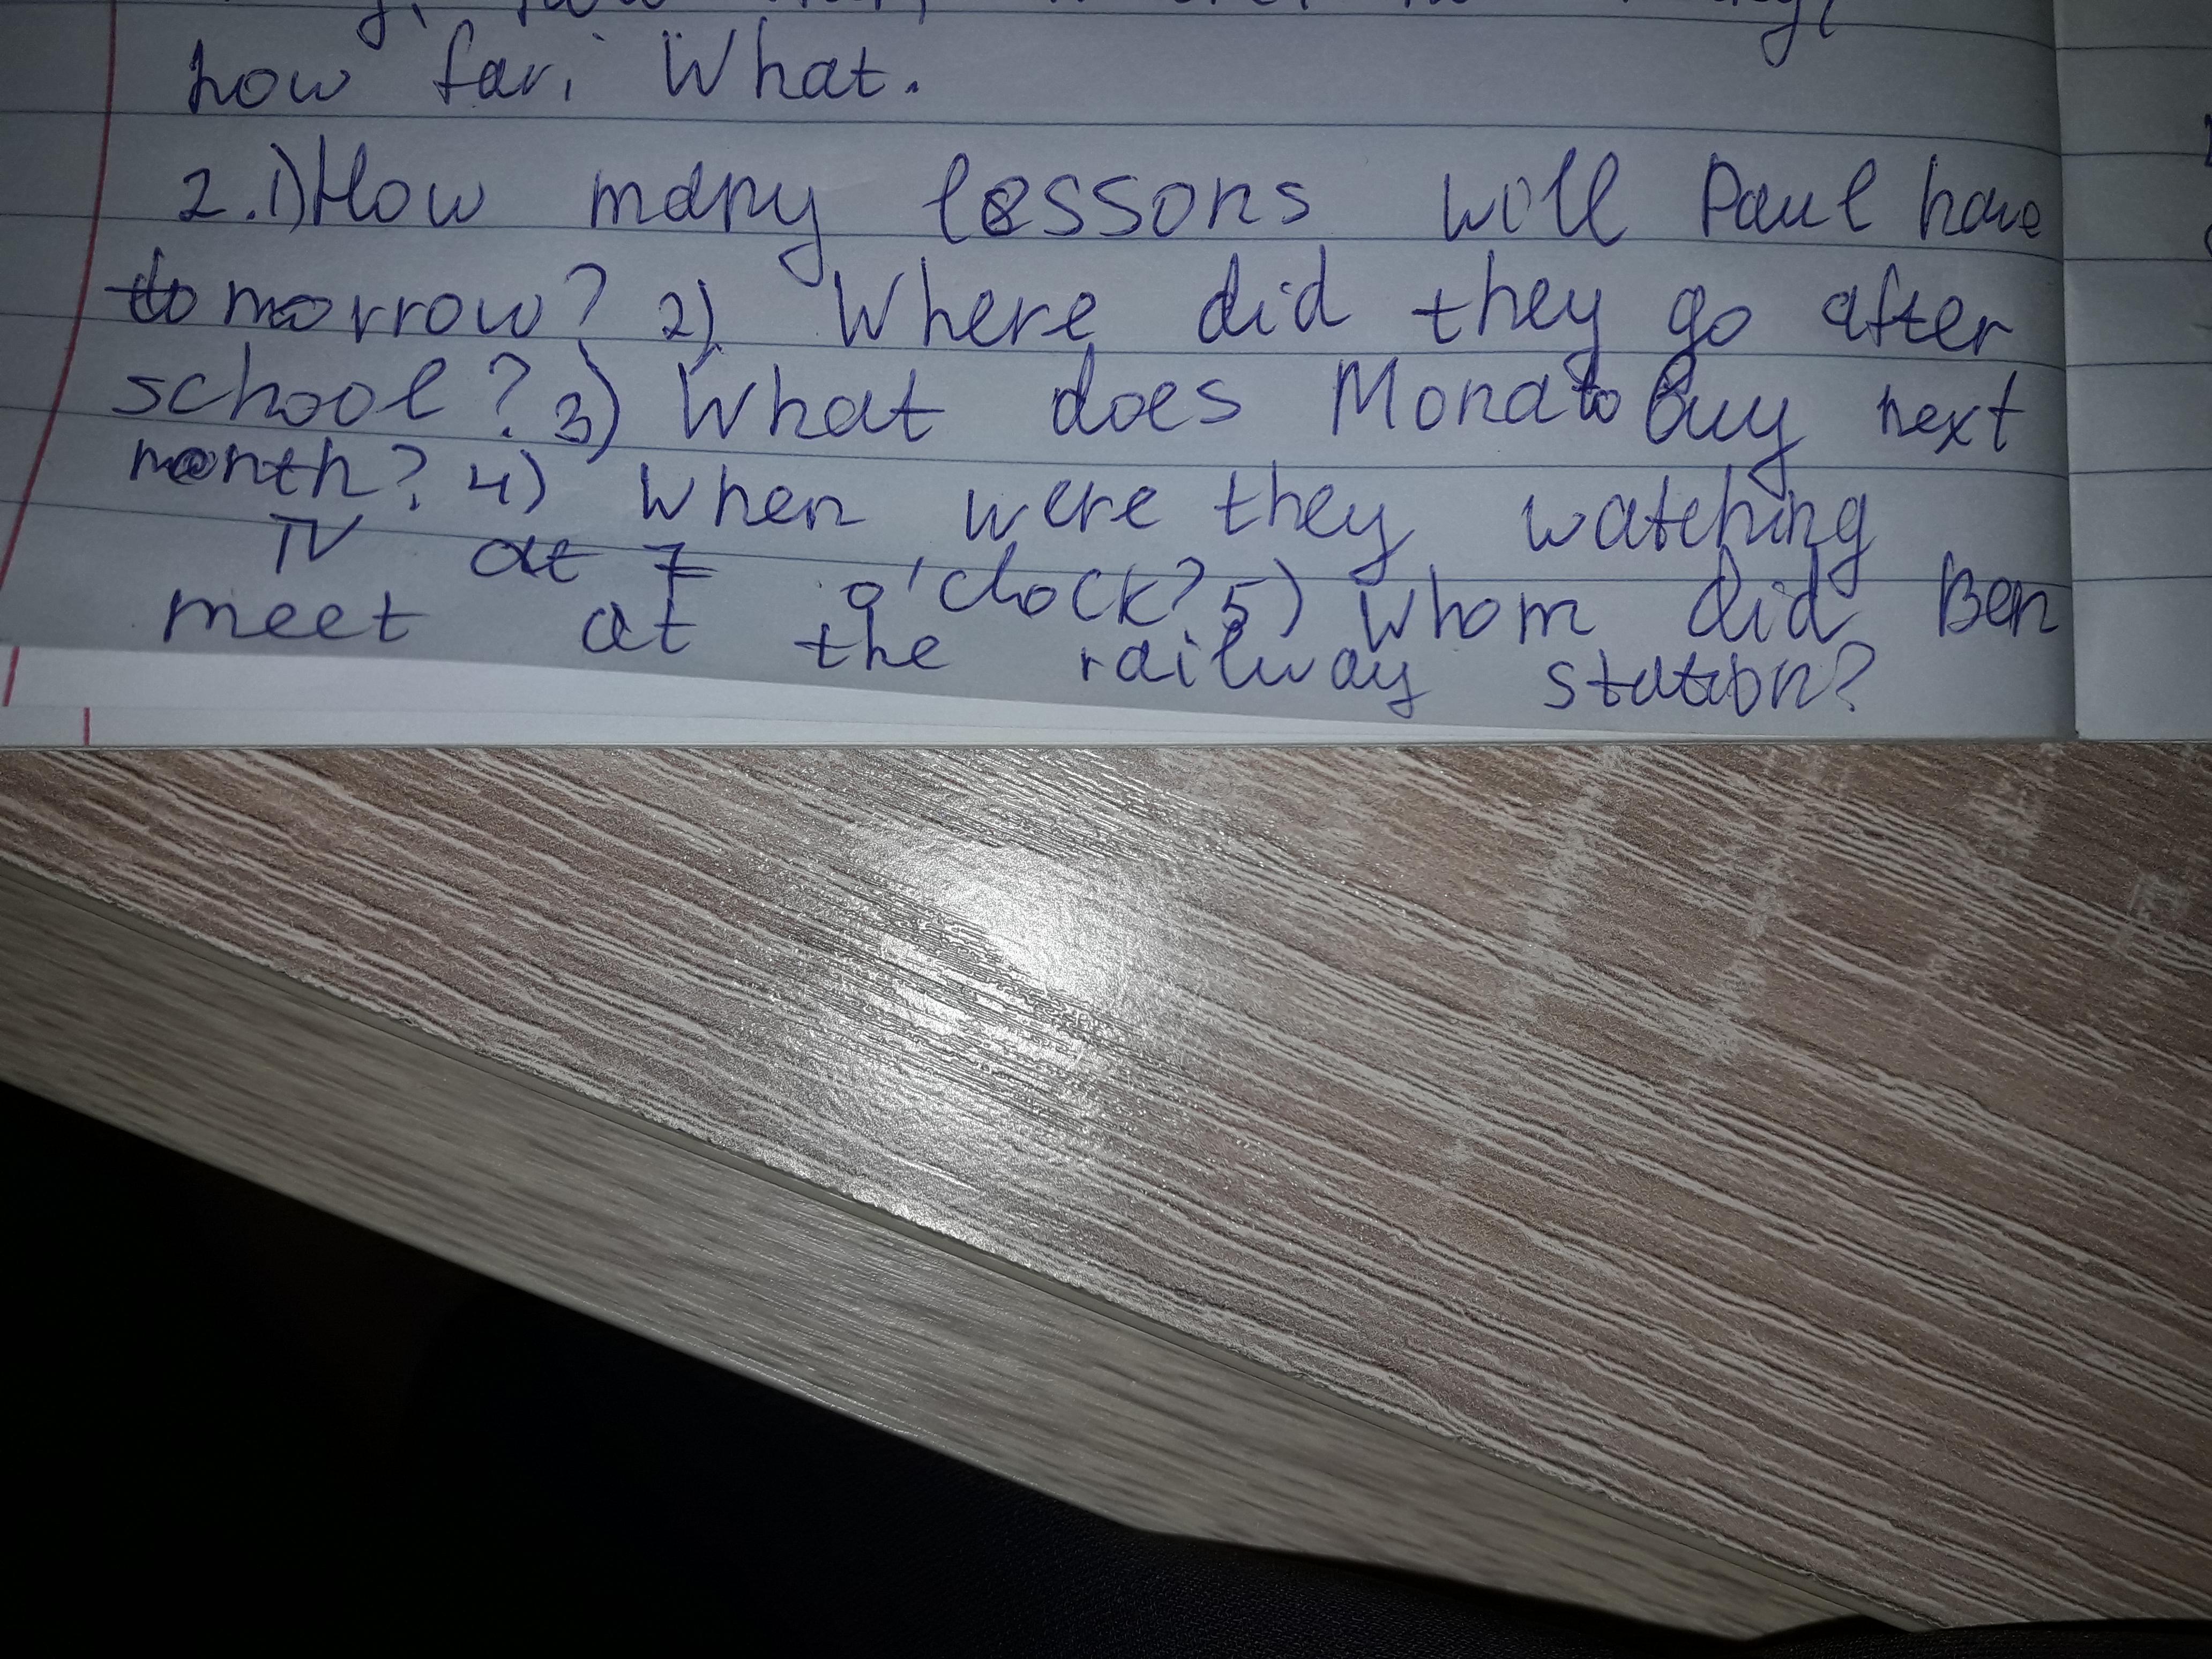 how far, What.
2.1) How many lessons will Paul have
tomorrow? 2) Where did they go after
school? 3) What does Mona to buy next
month? 4) When were they watching
TV at 7 o'clock? 5) Whom did Ben
meet at the railway station?